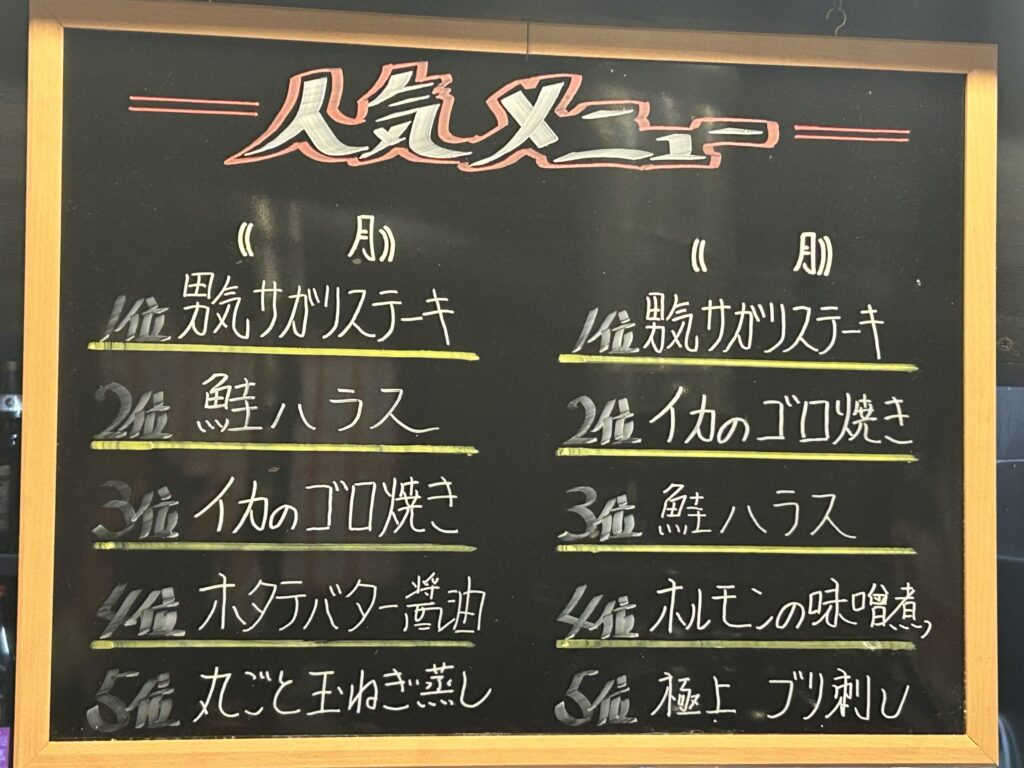 人気メニュー
《 月》
1位 男気サガリステーキ
2位 鮭ハラス
3位 イカのゴロ焼き
4位 ホタテバター醤油
5位 丸ごと玉ねぎ蒸し
《 月》
1位 男気サガリステーキ
2位 イカのゴロ焼き
3位 鮭ハラス
4位 ホルモンの味噌煮
5位 極上 ブリ刺し